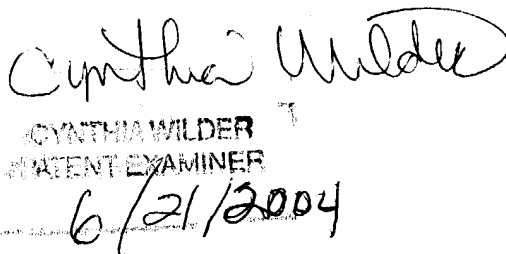 Cynthia Wilder
CYNTHIA WILDER
PATENT EXAMINER
6/21/2004